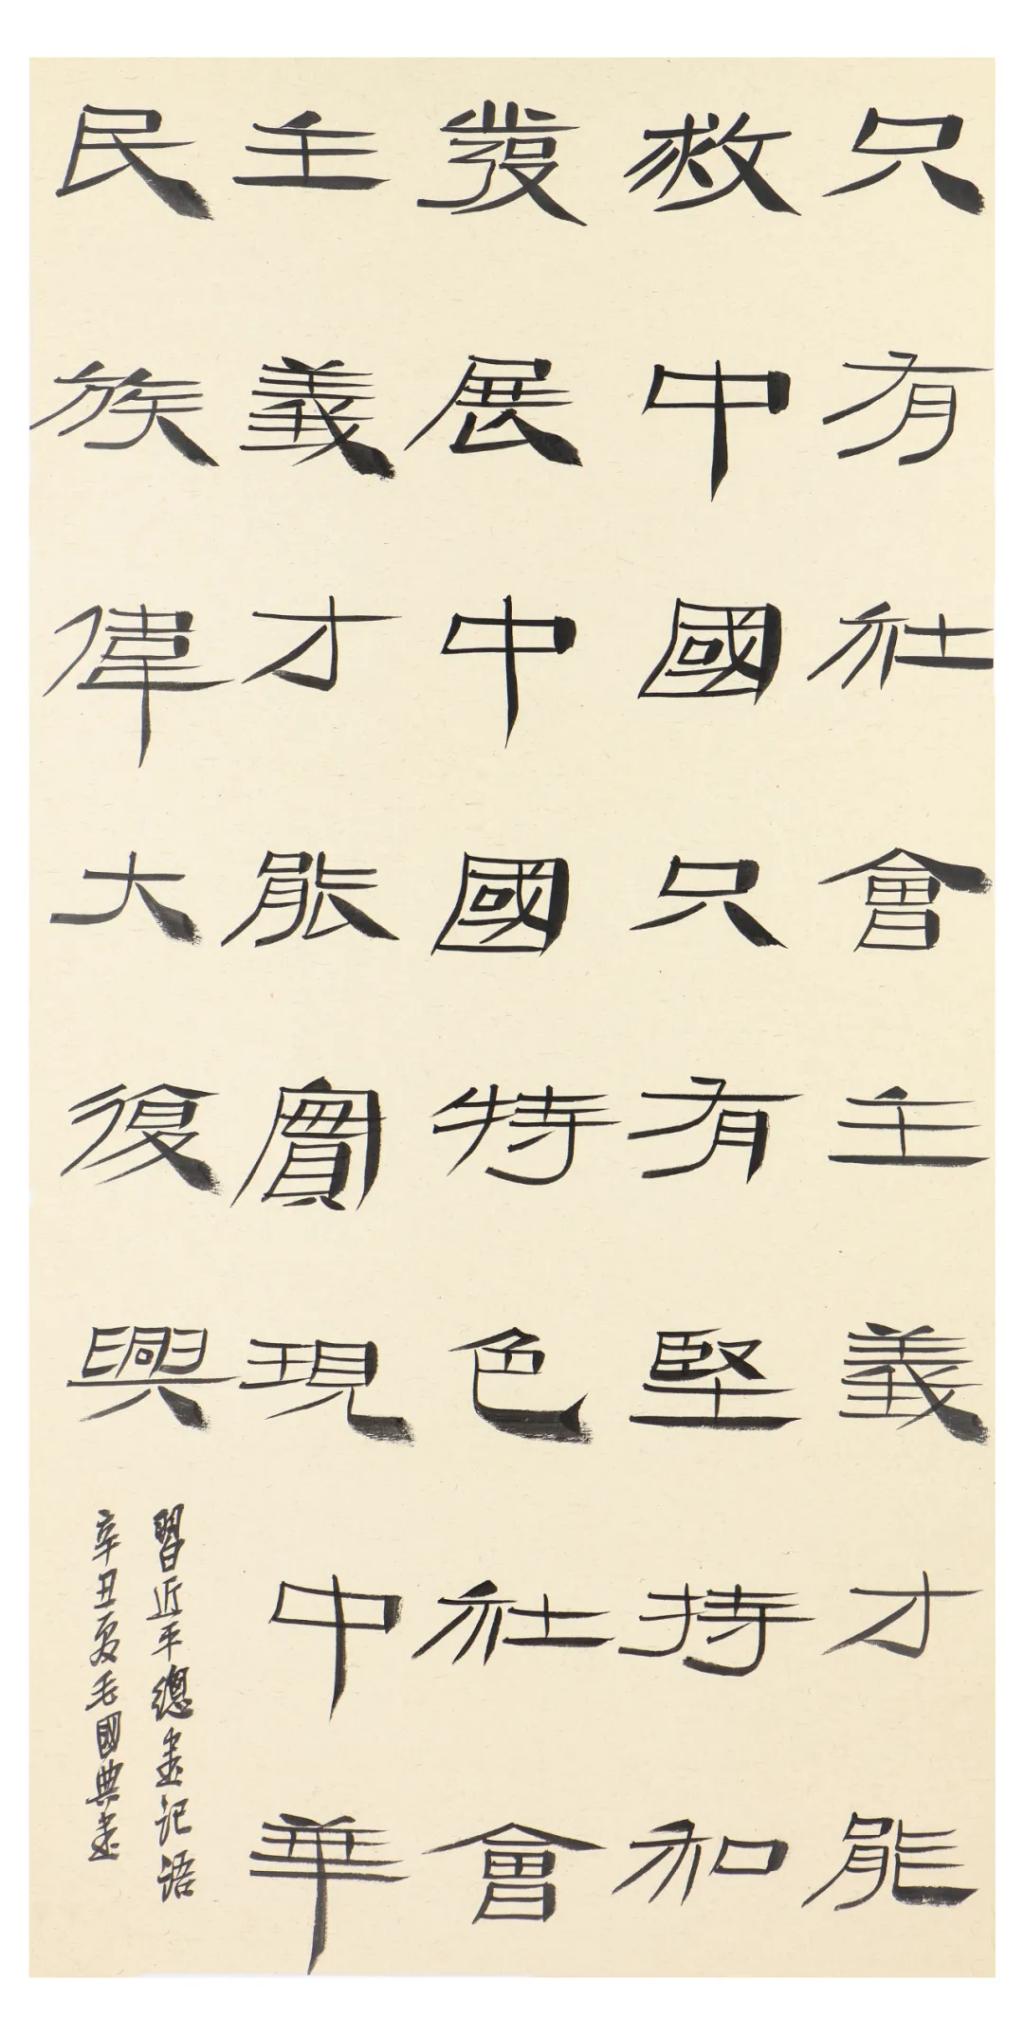 只有社會主義才能
救中國只有堅持和
發展中國特色社會
主義才能實現中華
民族偉大復興
習近平總書記語
辛丑夏毛國典書